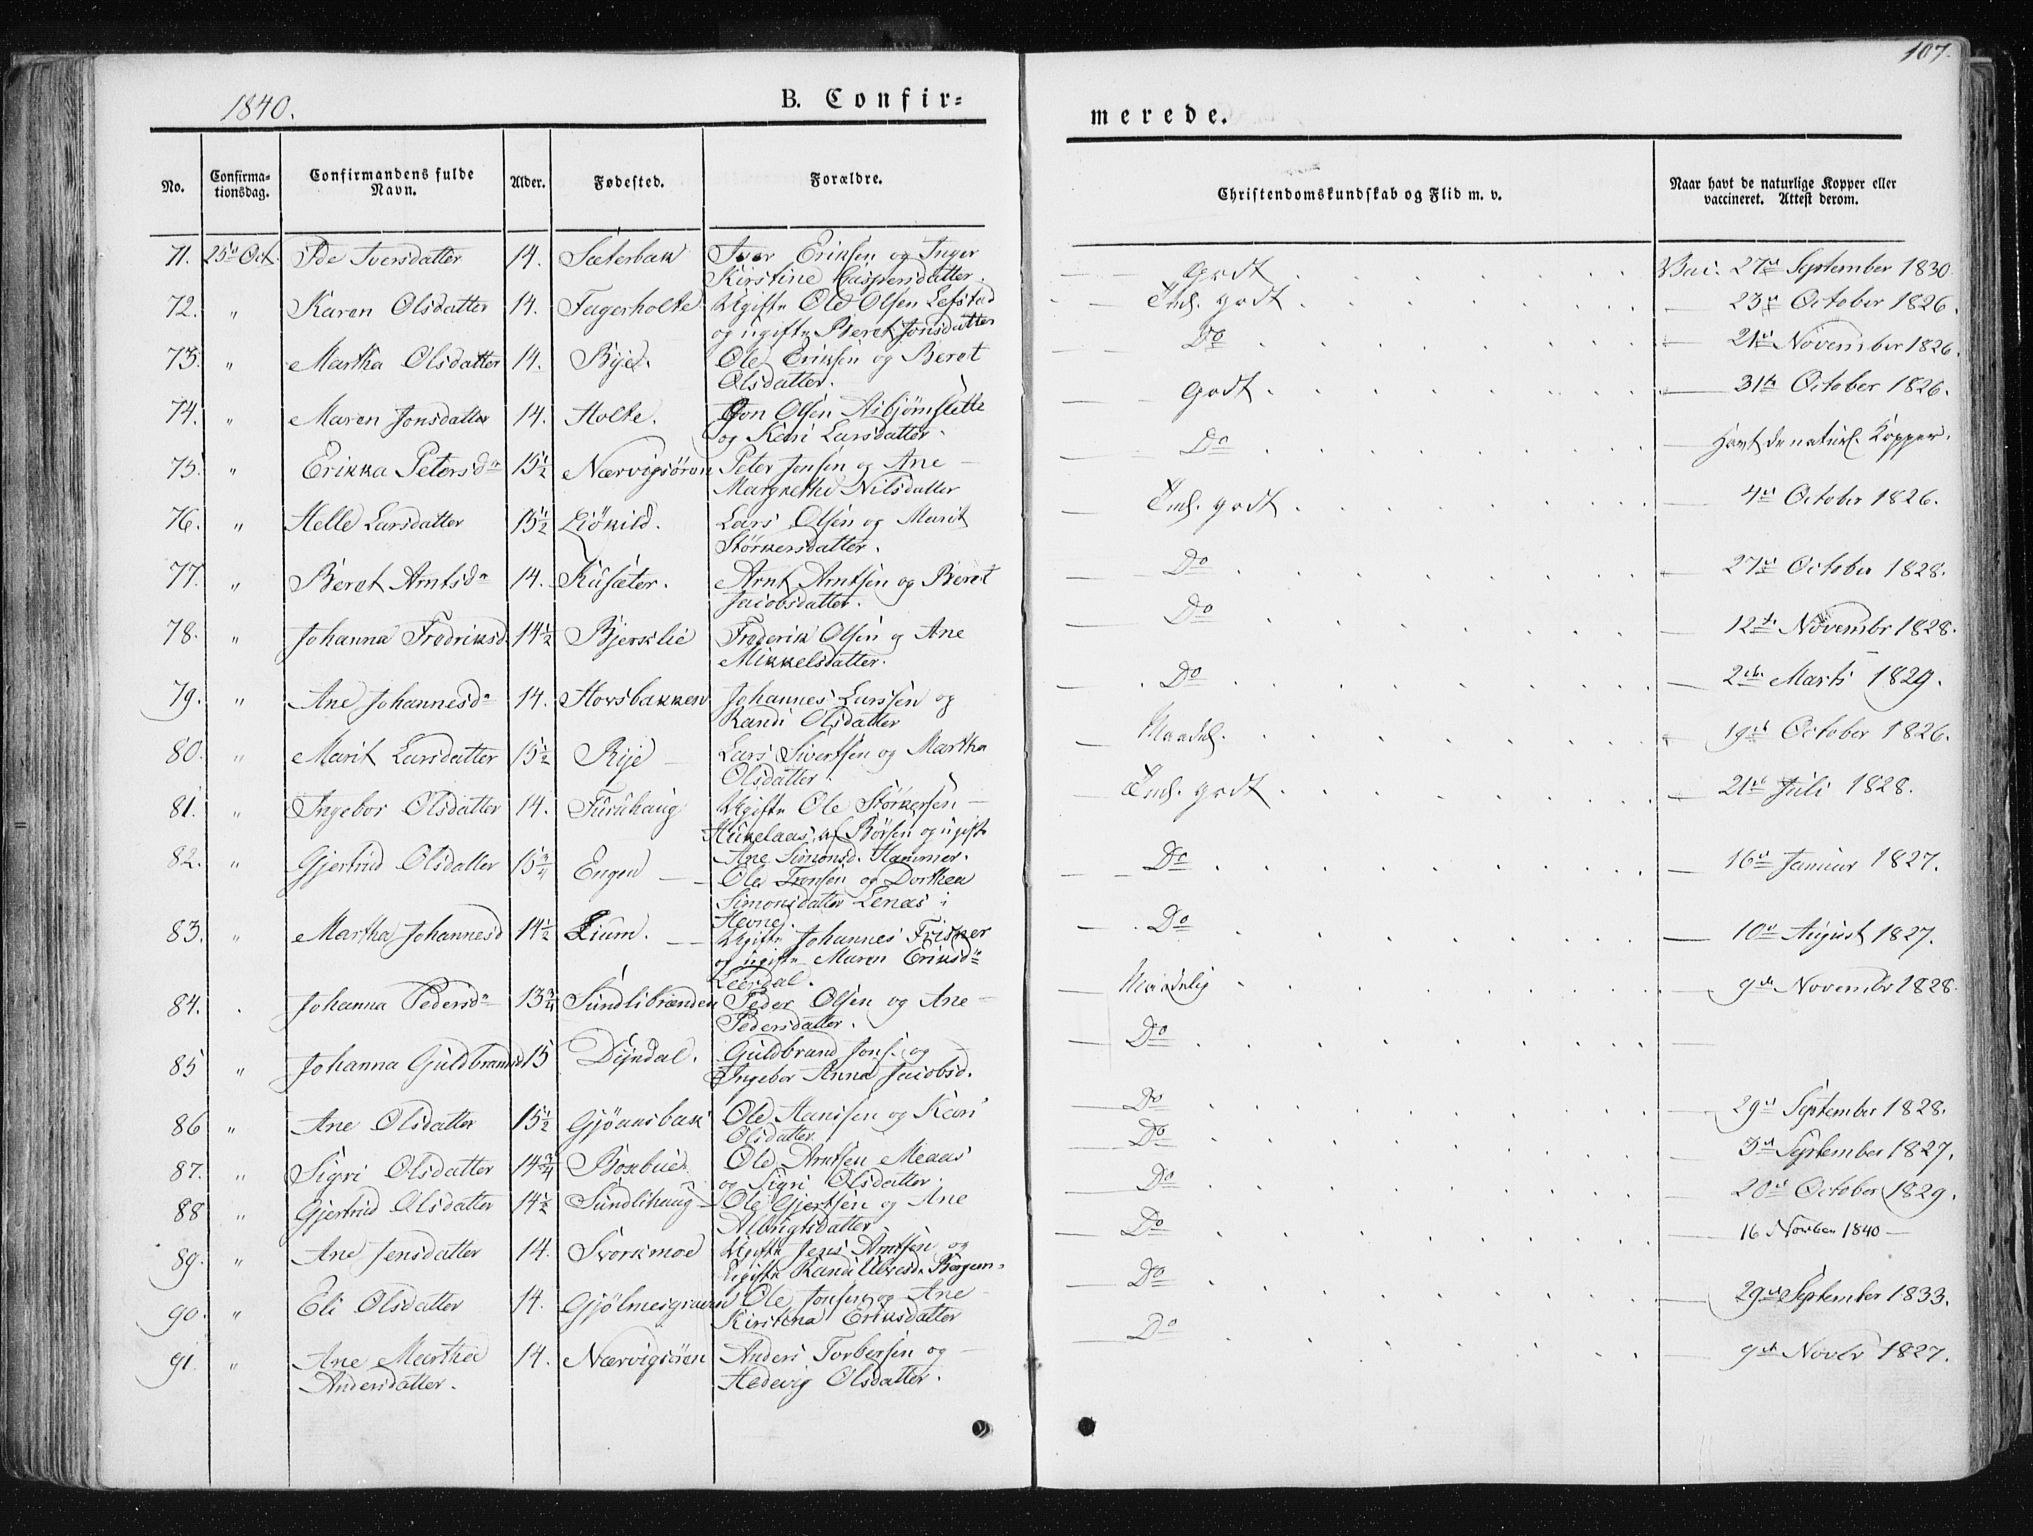 107.
1840.
B. Confir=
merede.
No.
Confirma-
tionsdag.
Confirmandens fulde
Navn.
Alder.
Fødested.
Forældre.
Christendomskundskab og Flid m. v.
Naar havt de naturlige Kopper eller
vaccineret. Attest derom.
71. 25de Oct. Ide Iversdatter 14. Sæterbak Iver Eriksen og Inger
Kirstine Caspersdatter. Godt Vac. 27de September 1830
72. " Karen Olsdatter 14. Fagerholte Ugifte Ole Olsen Lefstad
og ugifte Beret Jonsdatter Tml. godt — 23de October 1826.
73. " Martha Olsdatter 14. Bye. Ole Eriksen og Beret
Olsdatter. Do — 21de November 1826.
74. " Maren Jonsdatter 14. Holte. Jon Olsen Asbjørnslette
og Kari Larsdatter. Godt — 31te October 1826.
75. " Erikka Petersdr 15½ Nærvigsøren Peter Jonsen og Ane
Margrethe Nilsdatter Do — Havt de naturl. Kopper.
76. " Helle Larsdatter 15½ Liøkild. Lars Olsen og Marit
Størkersdatter. Tml. godt — 4de October 1826.
77. " Beret Arntsdr 14. Kusæter. Arnt Arntsen og Beret
Jacobsdatter. Do 27de October 1828.
78. " Johanna Fredriksd 14½ Bjerslie Frederik Olsen og Ane
Mikkelsdatter. Do — 12te Novembr 1828.
79. " Ane Johannesdr 14. Hovsbakken Johannes Larssen og
Randi Olsdatter Do — 2den Marts 1829.
80. " Marit Larsdatter 15½ Rye — Lars Sivertsen og Martha
Olsdatter. Maadel. 19de October 1826.
81. " Ingebor Olsdatter 14. Furuhaug Ugifte Ole Størkersen —
Hukelaas, af Børsen og ugift
Ane Simonsd. Hammer. Tml. godt — 21de Juli 1828.
82. " Gjertrud Olsdatter 15¾ Engen — Ole Tronsen og Dorthea
Simonsdatter Lenæs i
Hevne. Do — 16de Januar 1827.
83. " Martha Johannesd 14½ Lium. — Ugifte Johannes Trisper
og ugifte Maren Eriksdr
Leerdal. Do — 10de August 1827.
84. . Johanna Pedersdr 13¾ Sundlibrænden Peder Olsen og Ane —
Pedersdatter. Maadelig — 9de Novembr 1828.
85 " Johanna Guldbrandsd 15 Dyndal. Guldbrand Jons. og —
Ingebor Anna Jacobsd. Do —
86 " Ane Olsdatter 15½ Gjønnsbak Ole Hanssen og Kari
Olsdatter Do — 29de September 1828.
87. " Sigri Olsdatter 14¾ Boxbue Ole Arntsen Meaas
og Sigri Olsdatter. Do 3de September 1827.
88 " Gjertrud Olsdatter 14½ Sundlihaug Ole Gjertsen og Ane
Albrigtsdatter Do — 20de October 1829.
89. " Ane Jensdatter 14. Svorkmoe Ugifte Jens Arntsen og
Ugifte Randi Bergum Do — 16 Novber 1840 —
90. " Eli Olsdatter 14. Gjølmesgraven Ole Jonsen og Ane
Kirstina Eriksdatter Do — 29de September 1833.
91. " Ane Martha
Andersdatter. 14. Nærvigsøren Anders Torbersen og
Hedevig Olsdatter. Do — 9de Novbr 1827.